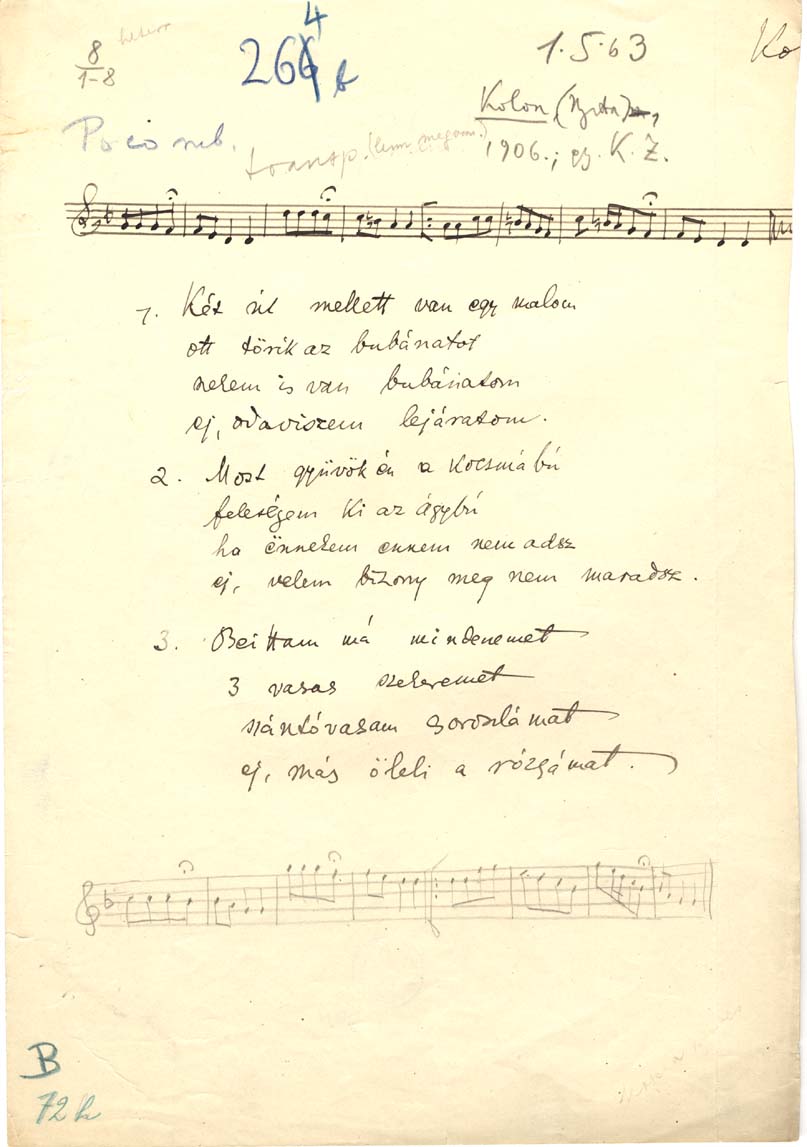 8
1-8
264 b
1.5.63
Ko
Kolon, (Nyitra),
Poco rub.
transp.
1906.; gy. K. Z.
1. Két út mellett van egy malom
ott törik az bubánatot
nekem is van bubánatom
ej, odaviszem lejáratom.
2. Most gyüvök én a kocsmábú
feleségem ki az ágybú
ha ënnekem ennem nem adsz
ej, velem bizony meg nem maradsz.
3. Beittam má mindenemet
3 vasas szekeremet
szántóvasam
ej, más öleli a rózsámat.
B
72 k